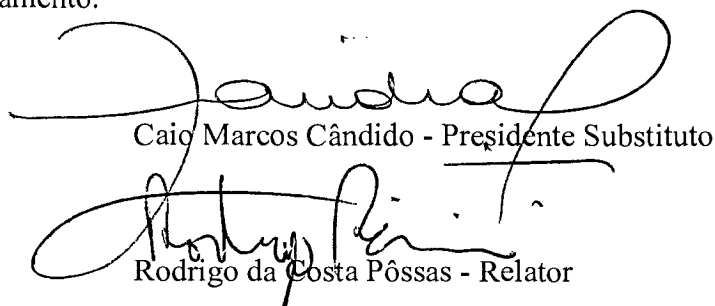 amento.
Caio Marcos Cândido - Presidente Substituto
Rodrigo da Costa Pôssas - Relator